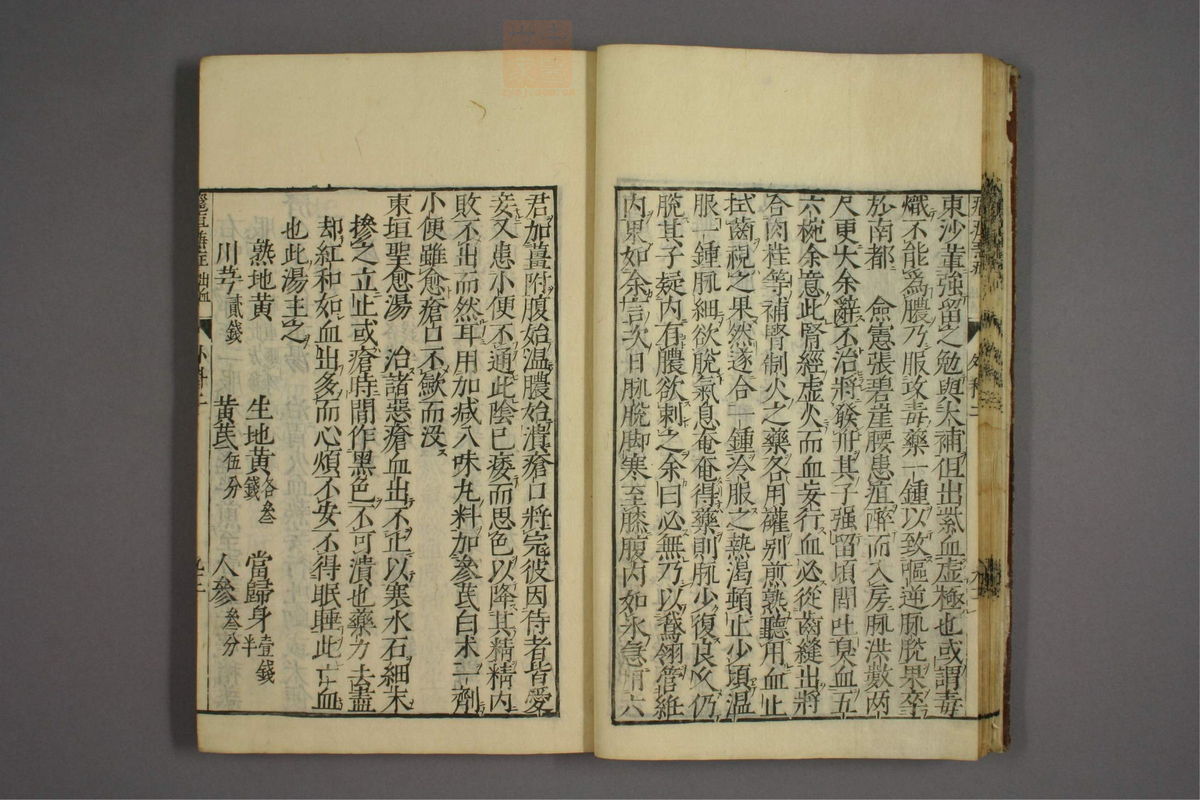 東沙董強留之勉與大補但出紫血虛極也或謂毒
熾不能爲膿乃服攻毒藥一鍾以致嘔逆脉脫果卒
於南都　僉憲張碧崖腰患疽醉而入房脉洪數兩
尺更大余辭不治將發舟其子強留頃間吐臭血五
六椀余意此腎經虛火而血妄行血必從齒縫出將
合肉桂等補腎制火之藥各用礶別煎熟聽用血止
拭齒視之果然遂合一鍾冷服之熱渴頓止少頃溫
服一鍾脉細欲脫氣息奄奄得藥則脉少復良久仍
脫其子疑內有膿欲刺之余曰必無乃以鵞翎管絍
內果如余言次日脉脫脚寒至膝腹內如氷急
君加薑附腹始溫膿始潰瘡口將完彼因侍者皆愛
妾又患小便不通此陰已痿而思色以降其精精內
敗不出而然耳用加减八味丸料加參芪白朮一劑
小便雖愈瘡口不歛而沒
東垣聖愈湯　治諸惡瘡血出不止以寒水石細末
摻之立止或瘡時間作黑色不可潰也藥力去盡
却紅和如血出多而心煩不安不得眠睡此亡血
也此湯主之
熟地黃　生地黃各叁錢　當歸身壹錢半
川芎貳錢　黃芪伍分　人參叁分